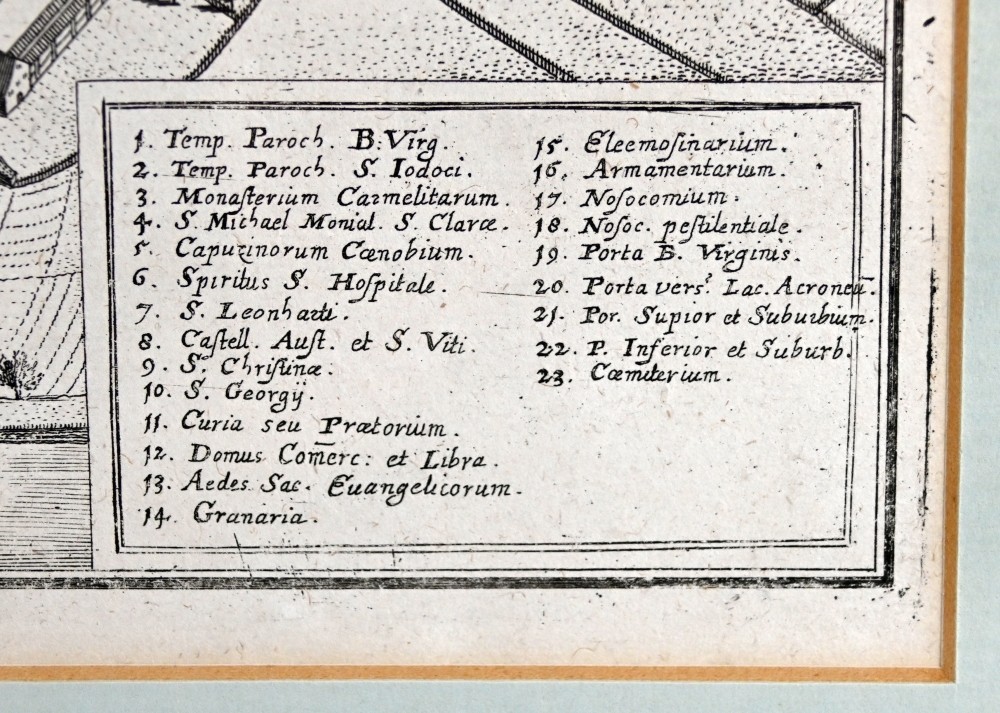 1. Temp. Paroch. B. Virg.
2. Temp. Paroch. S. Iodoci.
3. Monaſterium Carmelitarum.
4. S. Michael Monial. S. Claræ.
5. Capuzinorum Cœnobium.
6. Spiritus S. Hoſpitale.
7. S. Leonharti.
8. Caſtell. Auſt. et S. Viti.
9. S. Chriſtinæ.
10. S. Georgij.
11. Curia seu Prætorium.
12. Domus Com̄erc: et Libra.
13. Aedes Sac. Euangelicorum.
14. Granaria.
15. Eleemoſinarium.
16. Armamentarium.
17. Noſocomium.
18. Noſoc. peſtilentiale.
19. Porta B. Virginis.
20. Porta vers? Lac. Acroneū.
21. Por. Supior et Suburbium.
22. P. Inferior et Suburb.
23. Cœmiterium.